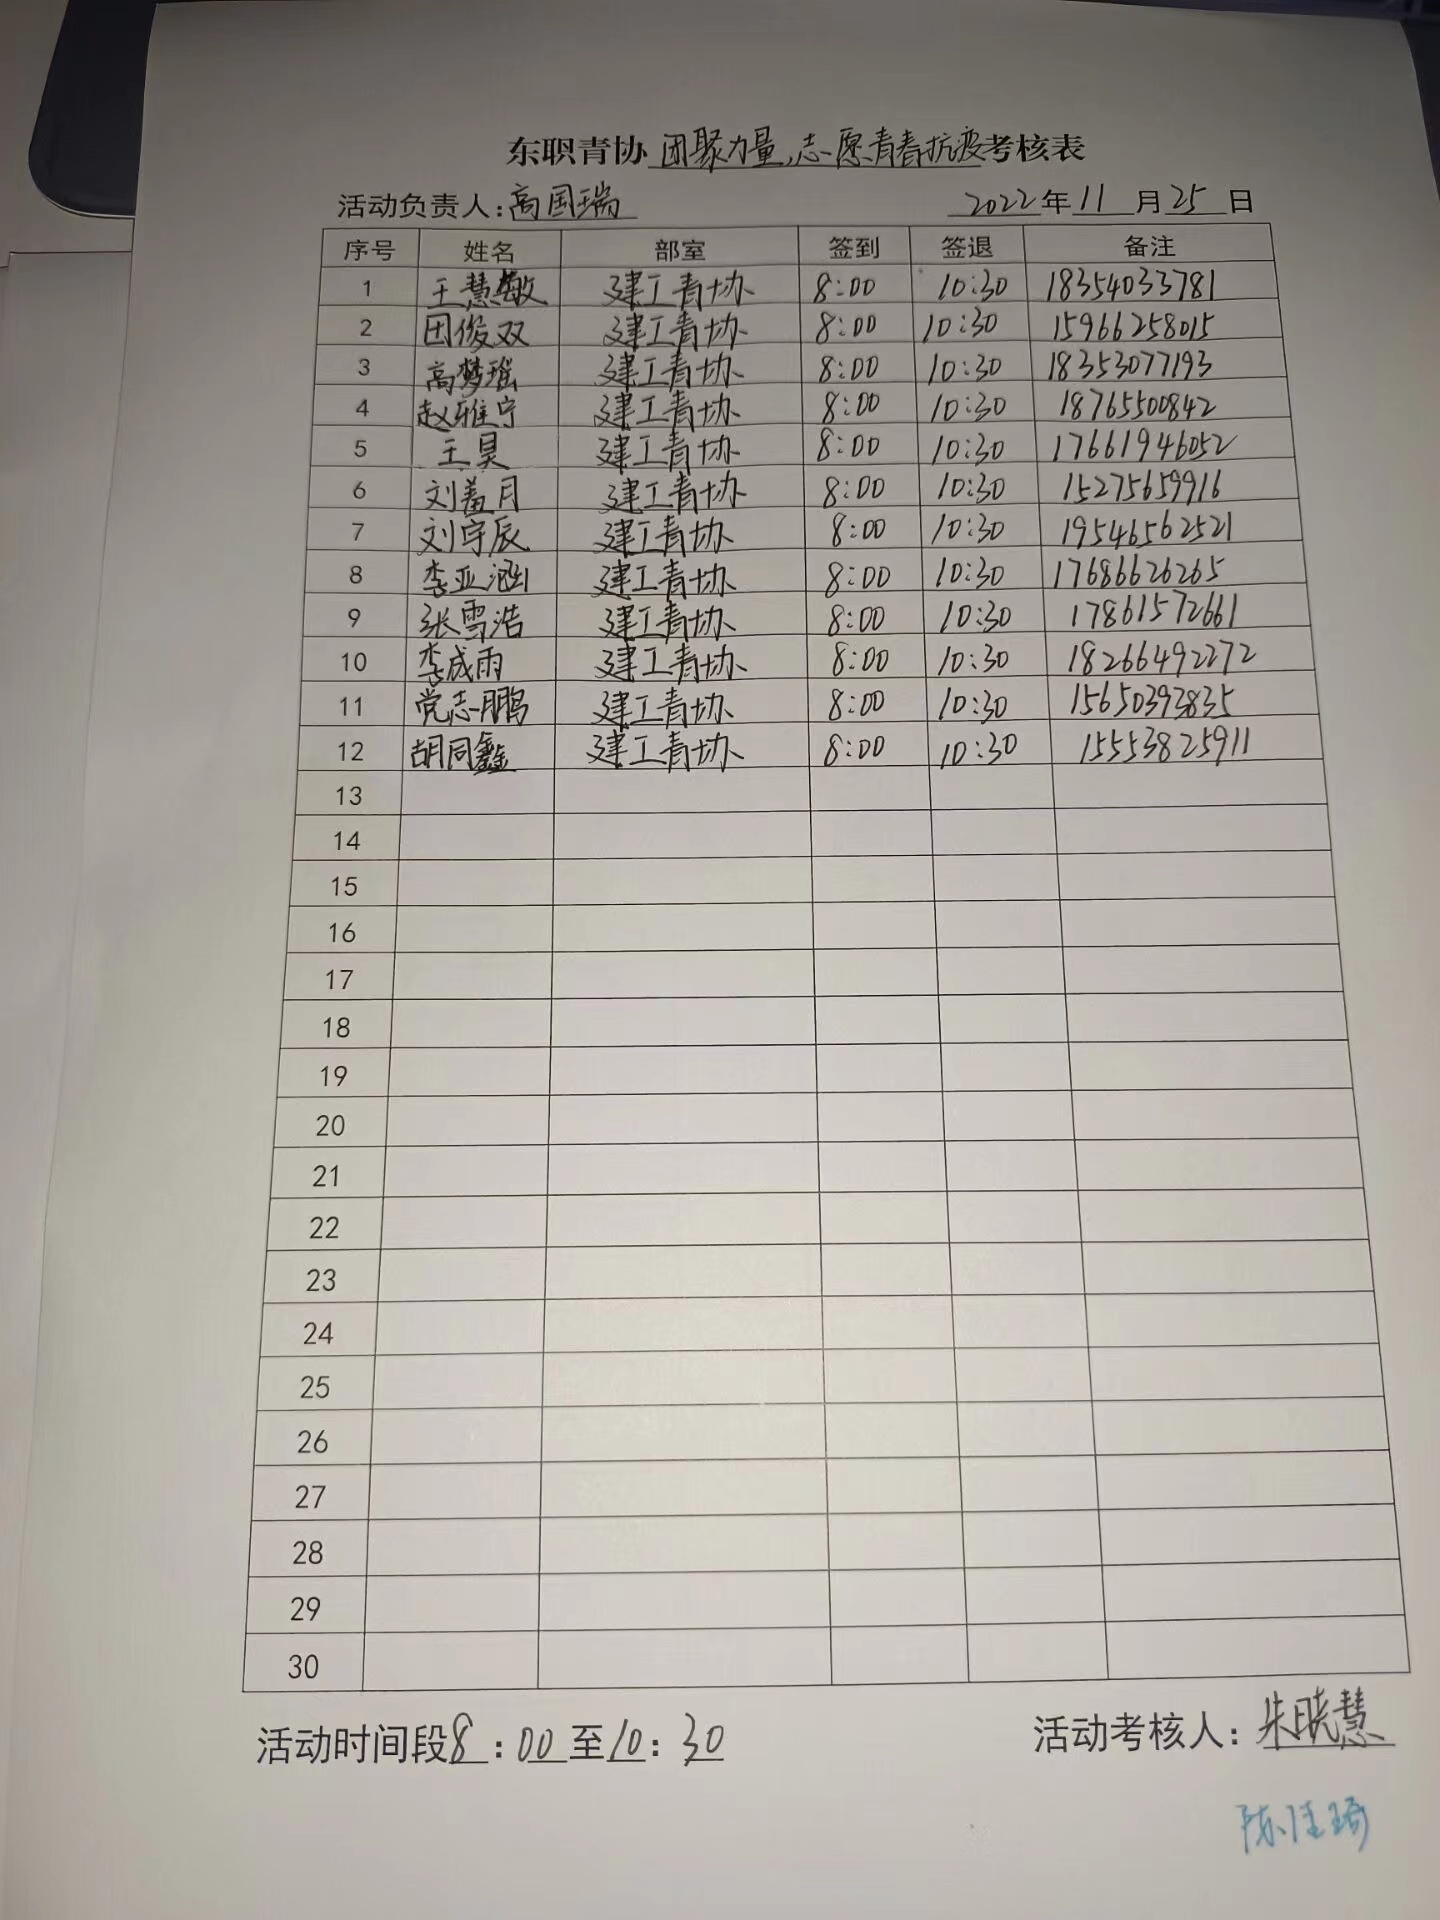 东职青协 团聚力量,志愿青春抗疫考核表
活动负责人:高国瑞 2022年11月25日
序号 姓名 部室 签到 签退 备注
1 王慧敏 建工青协 8:00 10:30 18354033781
2 田俊双 建工青协 8:00 10:30 15966258015
3 高梦瑶 建工青协 8:00 10:30 18353077193
4 赵雅宁 建工青协 8:00 10:30 18765500842
5 王昊 建工青协 8:00 10:30 17661946052
6 刘羞月 建工青协 8:00 10:30 15275659916
7 刘宇辰 建工青协 8:00 10:30 19546562521
8 李亚涵 建工青协 8:00 10:30 17686626265
9 张雪浩 建工青协 8:00 10:30 17861572661
10 李成雨 建工青协 8:00 10:30 18266492272
11 党志鹏 建工青协 8:00 10:30 15650393835
12 胡同鑫 建工青协 8:00 10:30 15553825911
13
14
15
16
17
18
19
20
21
22
23
24
25
26
27
28
29
30
活动时间段8:00至10:30 活动考核人:朱晓慧
陈佳琦